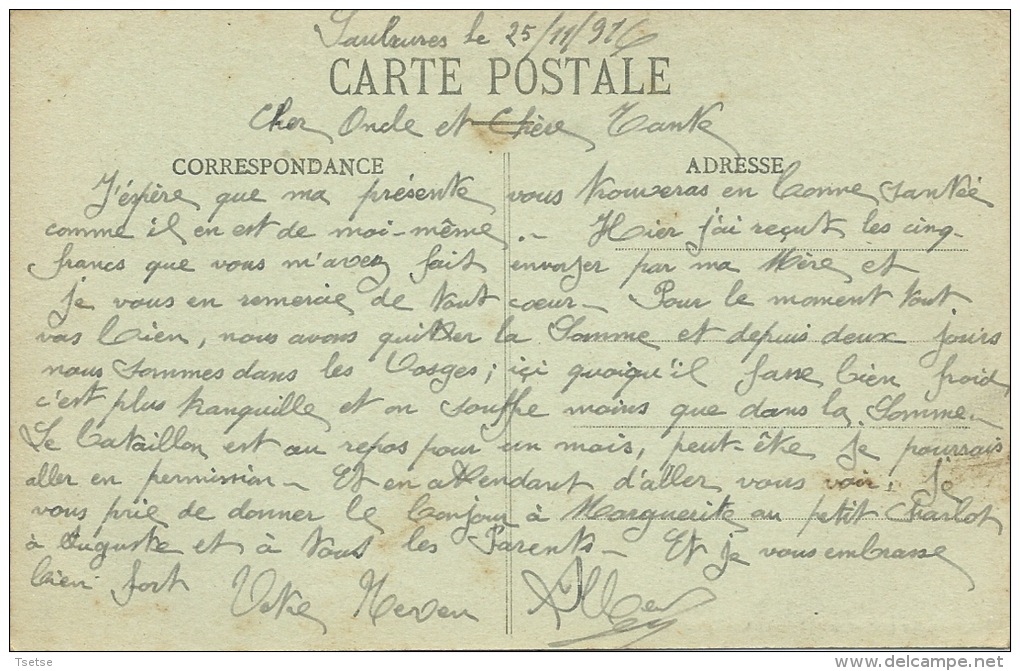 Saulxures le 25/11/916
CARTE POSTALE
Cher Oncle et Chère Tante
CORRESPONDANCE ADRESSE
J'éspère que ma présente vous trouveras en bonne santée
comme il en est de moi-même.- Hier j'ai reçut les cinq-
francs que vous m'avez fait envoyer par ma Mère et
je vous en remercie de tout cœur- Pour le moment tout
vas bien, nous avons quitter la Somme et depuis deux jours
nous sommes dans les Vosges; içi quoiqu'il fasse bien froid,
c'est plus tranquille et on souffre moins que dans la Somme-
Le bataillon est au repos pour un mois, peut-être je pourrais
aller en permission- Et en attendant d'aller vous voir, je
vous prie de donner le bonjour à Marguerite au petit Charlot
à Auguste et à tous les Parents- Et je vous embrasse
bien fort Votre Neveu Albert
Tsetse
delcampe.net